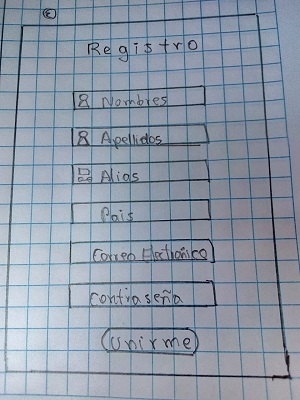 Registro
Nombres
Apellidos
Alias
Pais
Correo Electronico
Contraseña
Unirme